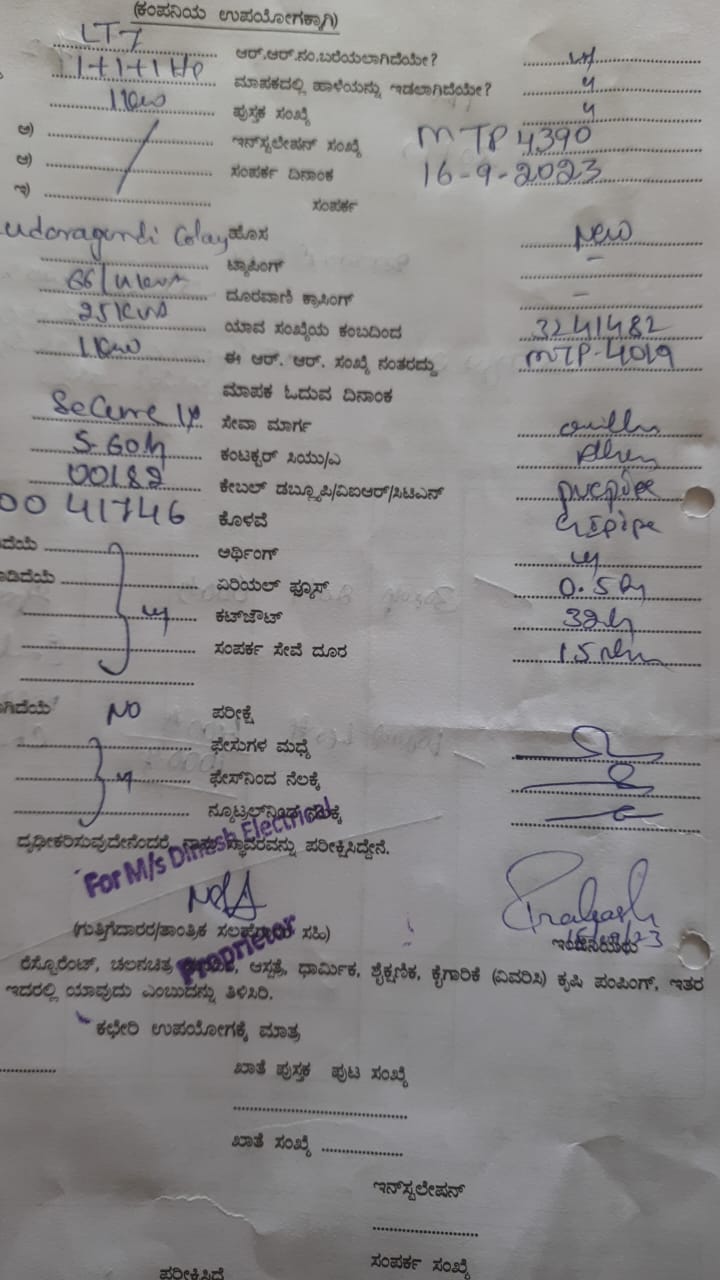 (ಕಂಪನಿಯ ಉಪಯೋಗಕ್ಕಾಗಿ)
LT7 ಆರ್.ಆರ್.ನಂ.ಬರೆಯಲಾಗಿದೆಯೇ?
1+1+1 HP ಮಾಪಕದಲ್ಲಿ ಹಾಳೆಯನ್ನು ಇಡಲಾಗಿದೆಯೇ?
1 kw ಪುಸ್ತಕ ಸಂಖ್ಯೆ
ಅ) ಇನ್‌ಸ್ಟಲೇಷನ್ ಸಂಖ್ಯೆ MTP 4390
ಆ) ಸಂಪರ್ಕ ದಿನಾಂಕ 16-9-2023
ಇ) ಸಂಪರ್ಕ
ಹೊಸ New
ಟ್ಯಾಪಿಂಗ್ -
66/11kva ದೂರವಾಣಿ ಕ್ರಾಸಿಂಗ್ -
25kva ಯಾವ ಸಂಖ್ಯೆಯ ಕಂಬದಿಂದ 3241482
1 kw ಈ ಆರ್. ಆರ್. ಸಂಖ್ಯೆ ನಂತರದ್ದು MTP-4019
ಮಾಪಕ ಓದುವ ದಿನಾಂಕ
Secure ಸೇವಾ ಮಾರ್ಗ
5-60A ಕಂಟಕ್ಟರ್ ಸಿಯು/ಎ
00182 ಕೇಬಲ್ ಡಬ್ಲ್ಯೂಪಿ/ವಿಐಆರ್/ಸಿಟಿಎಸ್
00 41746 ಕೊಳವೆ GI pipe
ದೆಯೆ ಅರ್ಥಿಂಗ್
ಏರಿಯಲ್ ಫ್ಯೂಸ್
ಕಟ್‌ಜೌಟ್
ಸಂಪರ್ಕ ಸೇವೆ ದೂರ
ಗಿದೆಯೆ NO ಪರೀಕ್ಷೆ
ಫೇಸುಗಳ ಮಧ್ಯೆ
ಫೇಸ್‌ನಿಂದ ನೆಲಕ್ಕೆ
ನ್ಯೂಟ್ರಲ್‌ನಿಂದ ನೆಲಕ್ಕೆ
ದೃಢೀಕರಿಸುವುದೇನೆಂದರೆ, ನಾನು ಸ್ಥಾವರವನ್ನು ಪರೀಕ್ಷಿಸಿದ್ದೇನೆ.
For M/s Dinesh Electrical
Prakash
(ಗುತ್ತಿಗೆದಾರರ/ತಾಂತ್ರಿಕ ಸಲಹೆಗಾರರ ಸಹಿ) ಇಂಜಿನಿಯರು
Proprietor
ರೆಸ್ಟೊರೆಂಟ್, ಚಲನಚಿತ್ರ ಆಸ್ಪತ್ರೆ, ಧಾರ್ಮಿಕ, ಶೈಕ್ಷಣಿಕ, ಕೈಗಾರಿಕೆ (ವಿವರಿಸಿ) ಕೃಷಿ ಪಂಪಿಂಗ್, ಇತರ
ಇದರಲ್ಲಿ ಯಾವುದು ಎಂಬುದನ್ನು ತಿಳಿಸಿರಿ.
ಕಛೇರಿ ಉಪಯೋಗಕ್ಕೆ ಮಾತ್ರ
ಖಾತೆ ಪುಸ್ತಕ ಪುಟ ಸಂಖ್ಯೆ
ಖಾತೆ ಸಂಖ್ಯೆ
ಇನ್‌ಸ್ಟಲೇಷನ್
ಸಂಪರ್ಕ ಸಂಖ್ಯೆ
ಪರೀಕ್ಷಿಸಿದೆ